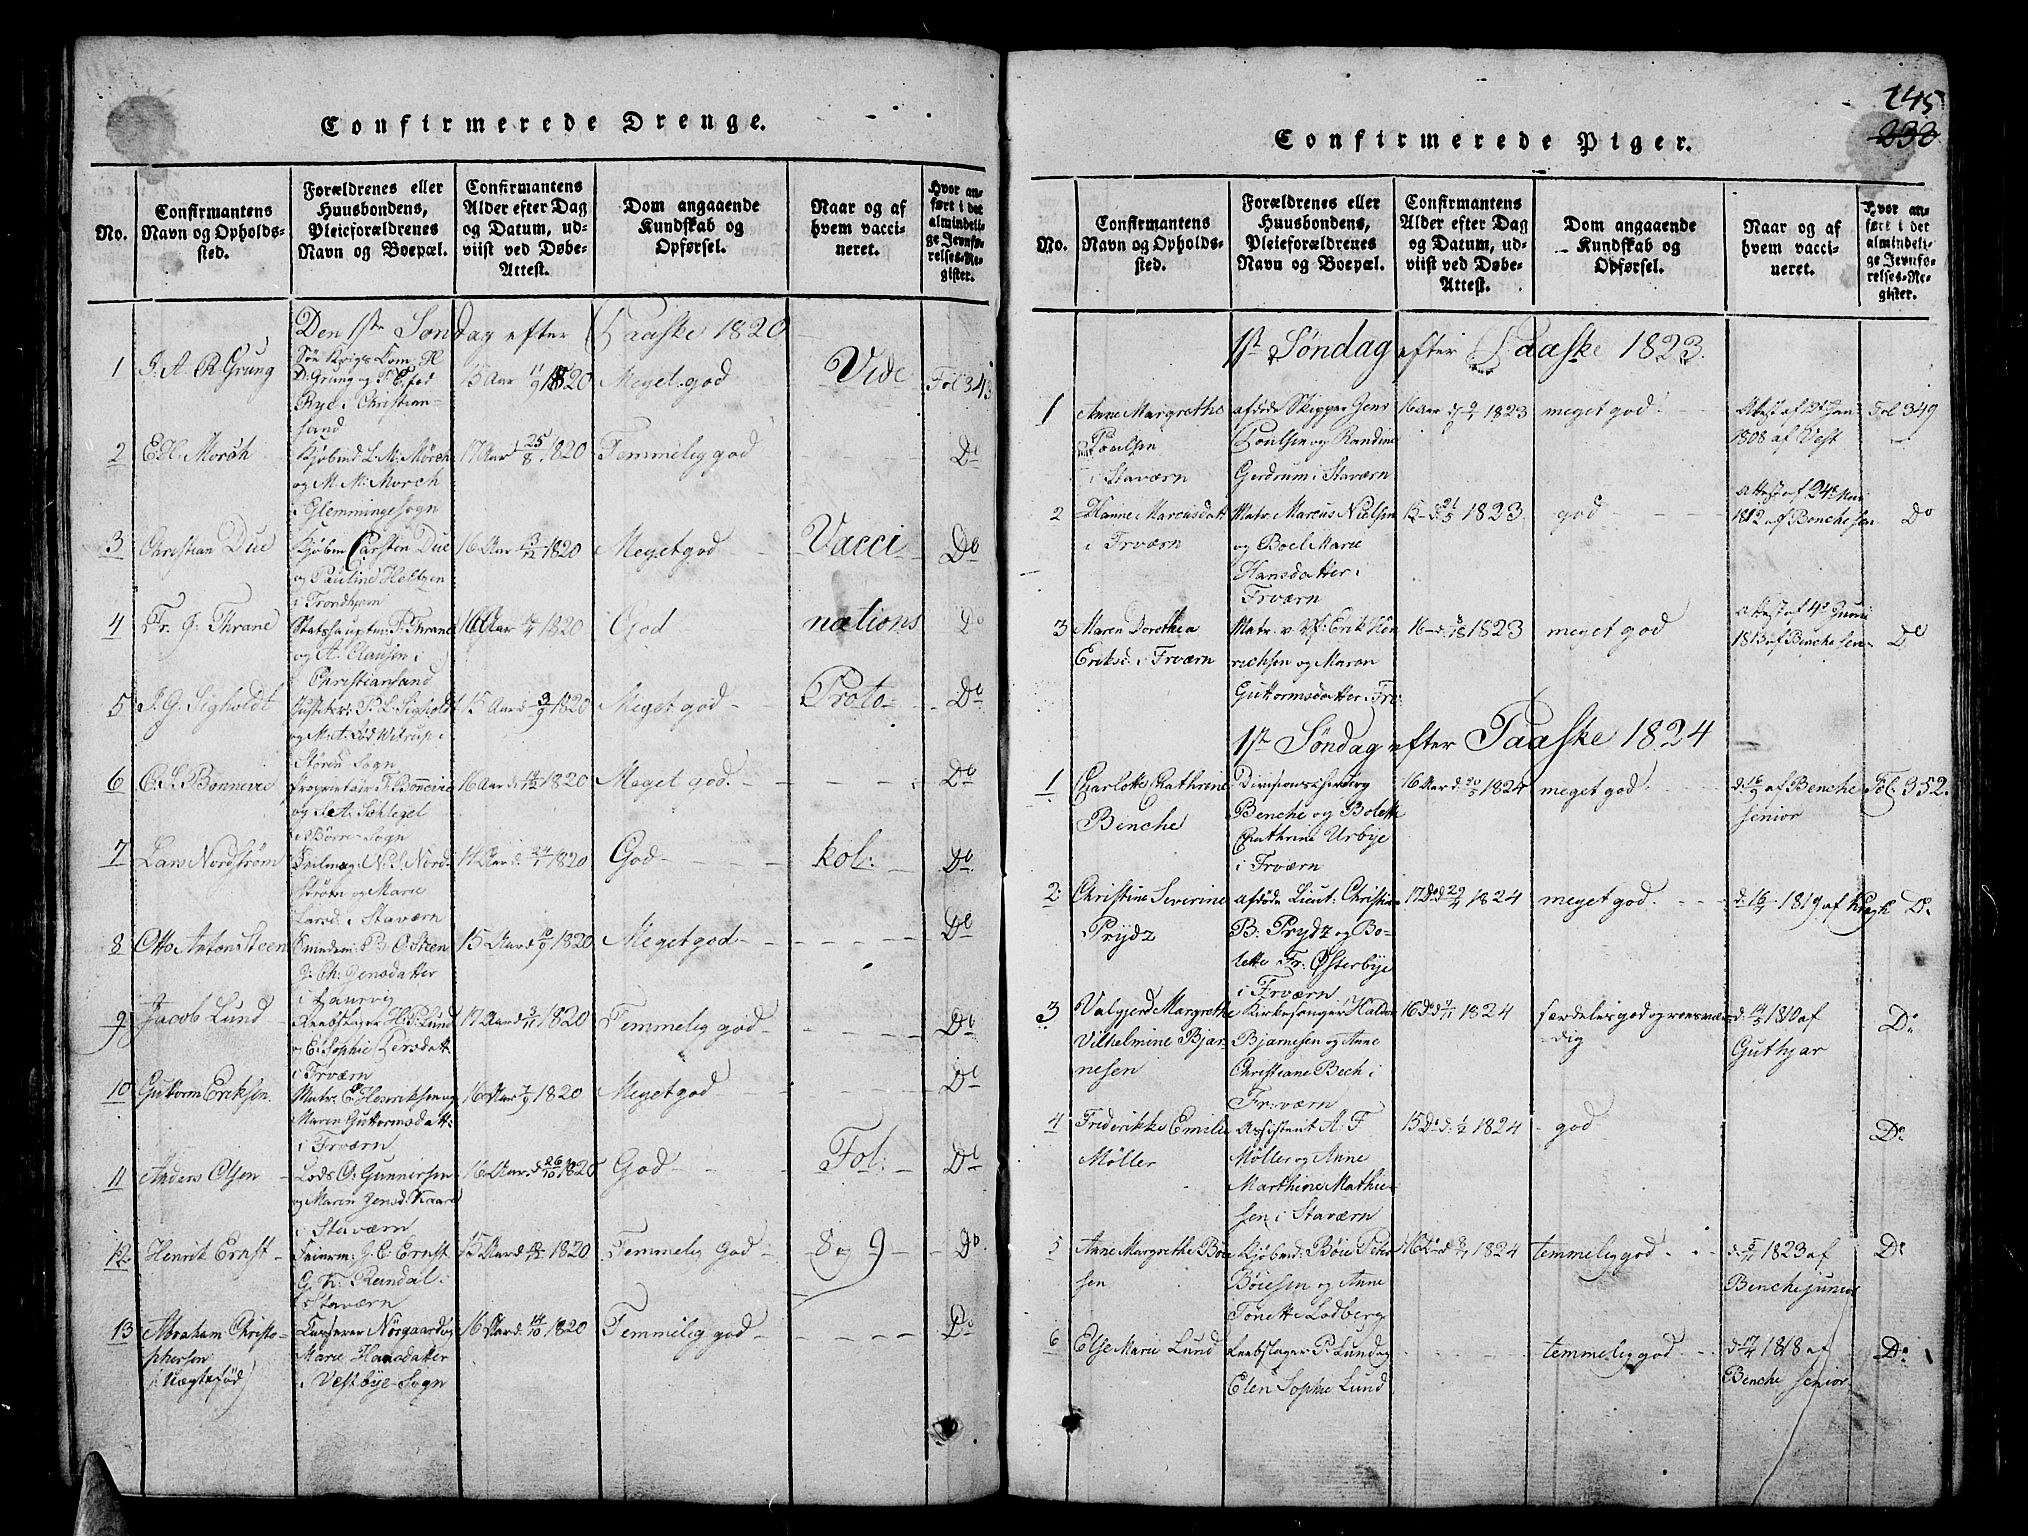 Confirmerede Drenge.
No.
Confirmantens
Navn og Opholds-
sted.
Forældrenes eller
Huusbondens,
Pleieforældrenes
Navn og Boepæl.
Confirmantens
Alder efter Dag
og Datum, ud-
viist ved Døbe-
Attest.
Dom angaaende
Kundskab og
Opførsel.
Naar og af
hvem vacci-
neret.
Hvor an-
ført i det
almindeli-
ge Jevnfø-
relses-Re-
gister.
Den 1ste Søndag efter Paaske 1820
1 J. A. R. Grung
D. Grung
Rye i Christian-
sand
15 Aar 11/9 1820 Meget god Vide Fol 343
2 E. H. Morch
Kjøbmd L. M. Mörch
og M. M: Morch
i Glemminge sogn
17 Aar d 25/8 1820 Temmelig god Do
3 Christian Due
Kjøbm Carsten Due
og Pauline Heltzen
i Trondhjem
16 Aar 3/12 1820 Meget god Vacci Do
4 Fr. G. Thrane
Thrane
og A. Clausen i
Christiansand
1820 God nations Do
5 J. G. Sigholdt
Sigholdt
15 Aar d 9/9 1820 Meget god Proto- Do
Sogn
6 Bonnevie
Proprietair F. Bonnevie
og S. A. Schlegel
i Börre-Sogn
16 Aar d: 1820 Meget god. Do
7 Lars Nordström
Nord-
ström og Marie
Larsd. i Staværn
1820 God kol: Do
8 Otto Anton Steen
B. O. Steen
Jensdatter
i Laurvig
15 Aar d 1820 Meget god Do
9 Jacob Lund
Reebslager H. P. Lund
og E. Sophie Larsdatt.
i Frværn
17 Aar d 1820 Temmelig god Do
10 Guttorm Eriksen.
Matr. E. Henriksen og
Maren Guttormsdatt:
i Frværn
16 Aar 7/9 1820 Meget god Do
11 Anders Olsen
Lods O. Gunnersen
og Maren Jensd. Kaare
i Staværn
16 Aar d 26/10 1820 God Fol: Do
12 Henrik Ernst
J. C. Ernst
Reindal i
Staværn
15 Aar d 1820 Temmelig God 8 og 9 Do
13 Abraham Christo-
phersen
(Uægtefød)
Nörgaard og
Marie Hansdatter
i Vestbye-Sogn
16 Aar d: 14/10 1820 Temmelig god Do
145
233
Confirmerede Piger.
No.
Confirmantens
Navn og Opholds-
sted.
Forældrenes eller
Huusbondens,
Pleieforældrenes
Navn og Boepæl.
Confirmantens
Alder efter Dag
og Datum, ud-
viist ved Døbe-
Attest.
Dom angaaende
Kundskab og
Opførsel.
Naar og af
hvem vacci-
neret.
Hvor an-
ført i det
almindeli-
ge Jevnfø-
relses-Re-
gister.
1st Søndag efter Paaske 1823.
1 Anne Margrethe
Poulsen
i Staværn
afdöde Skipper Jens
Poulsen og Randine
Gerdrum i Staværn
16 Aar 1823 meget god
Attest af
1808 af Vest
Fol 349
2 Hanne Marcusdatt
i Frværn
Matr. Marcus Nielsen
og Boel Marie
Hansdatter i
Frværn
15 1823 god
Attest af 24de Nov
1812 af Benche sen
Do
3 Maren Dorothea
Eriksd. i Frværn
Matr. v. Vf: Erik Hen
richsen og Maren
Guttormsdatter i Fr:
16 1823 meget god
Attest af 4de Junii
1813 af Benche sen-
Do
1st Søndag efter Paaske 1824
1 Charlotte Cathrine
Benche
Divisionschirurg
Benche og Bolette
Cathrine Urbye
i Frværn
16 Aar d: 30/5 1824 meget god
d: 16/9 af Benche
senior
Fol. 352.
2 Christine Severine
Prydz
afdöde Lieut: Christian
B: Prydz og Bo-
lette Fr: Østerbye
i Frværn
17 Do d 29/4 1824 meget god
d: 16/4 1819 af Kragh
Do
3 Valgjerd Margrethe
Vilhelmine Bjar-
nesen
Kirkesanger Haldor
Bjarnesen og Anne
Christiane Bech i
Fr:værn
16 Do d 7/1 1824 særdeles god og roesvær-
dig
d: 14/5 1810 af
Guthjar
Do
4 Frederikke Emilie
Møller
Assistent A. F
Møller og Anne
Marthine Mathie-
sen i Staværn
15 Do d: 1/2 1824 god Do
5 Anne Margrethe Böie
sen
Kjöbmd: Böie Peter
Böiesen og Anne
Tönette Lodberg
16 Do d 1824 temmelig god
d 5/7 1823 af
Benche junior
Do
6 Else Marie Lund
Reebslager P. Lund og
Elen Sophie Lund
temmelig god
d 17/4 1818 af
Benche senior
Do